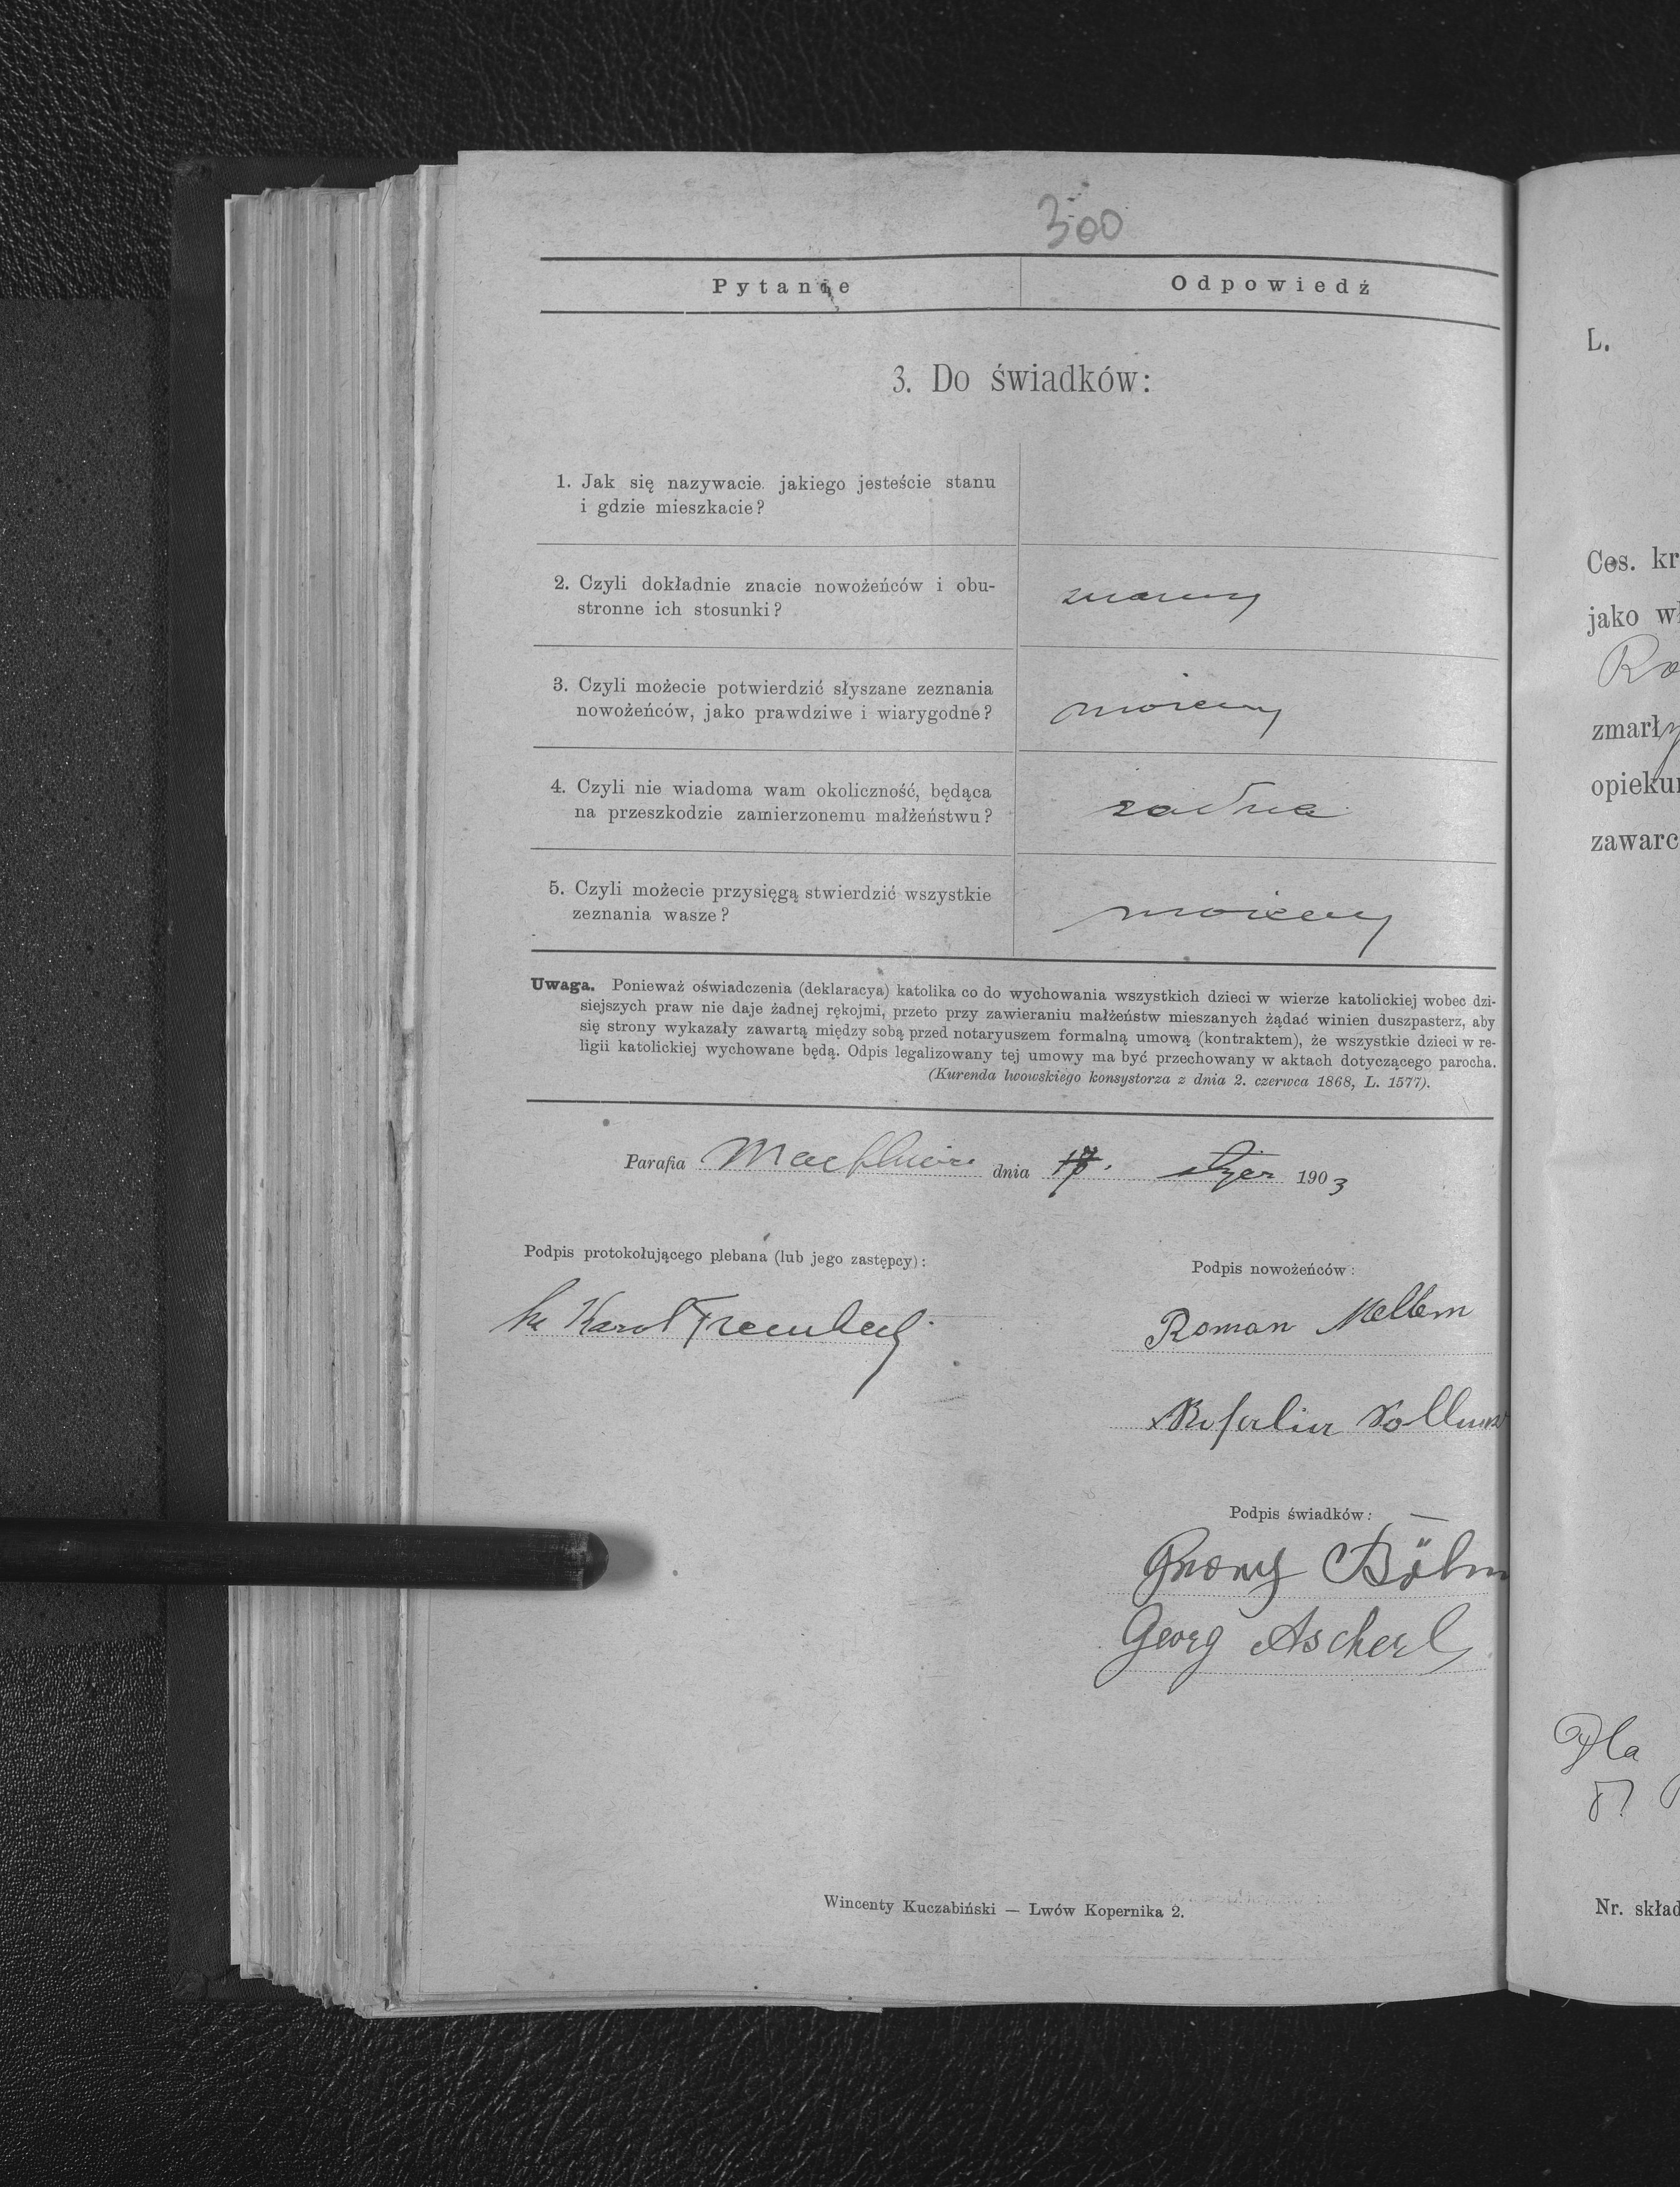 300
Pytanie Odpowiedź
3. Do świadków:
1. Jak się nazywacie. jakiego jesteście stanu
i gdzie mieszkacie?
2. Czyli dokładnie znacie nowożeńców i obu-
stronne ich stosunki?
znamy
3. Czyli możecie potwierdzić słyszane zeznania
nowożeńców, jako prawdziwe i wiarygodne?
możemy
4. Czyli nie wiadoma wam okoliczność, będąca
na przeszkodzie zamierzonemu małżeństwu?
żadna
5. Czyli możecie przysięgą stwierdzić wszystkie
zeznania wasze?
możemy
Uwaga. Ponieważ oświadczenia (deklaracya) katolika co do wychowania wszystkich dzieci w wierze katolickiej wobec dzi-
siejszych praw nie daje żadnej rękojmi, przeto przy zawieraniu małżeństw mieszanych żądać winien duszpasterz, aby
się strony wykazały zawartą między sobą przed notaryuszem formalną umową (kontraktem), że wszystkie dzieci w re-
ligii katolickiej wychowane będą. Odpis legalizowany tej umowy ma być przechowany w aktach dotyczącego parocha.
(Kurenda lwowskiego konsystorza z dnia 2. czerwca 1868, L. 1577).
Parafia dnia 17. 1903
Podpis protokołującego plebana (lub jego zastępcy):
Karol
Podpis nowożeńców:
Roman
Podpis świadków:
Böhm
Georg Ascherl
Wincenty Kuczabiński — Lwów Kopernika 2.
L.
Ces. kr
jako wł
Ro
zmarły
opiekun
zawarc
Dla
Nr. skład